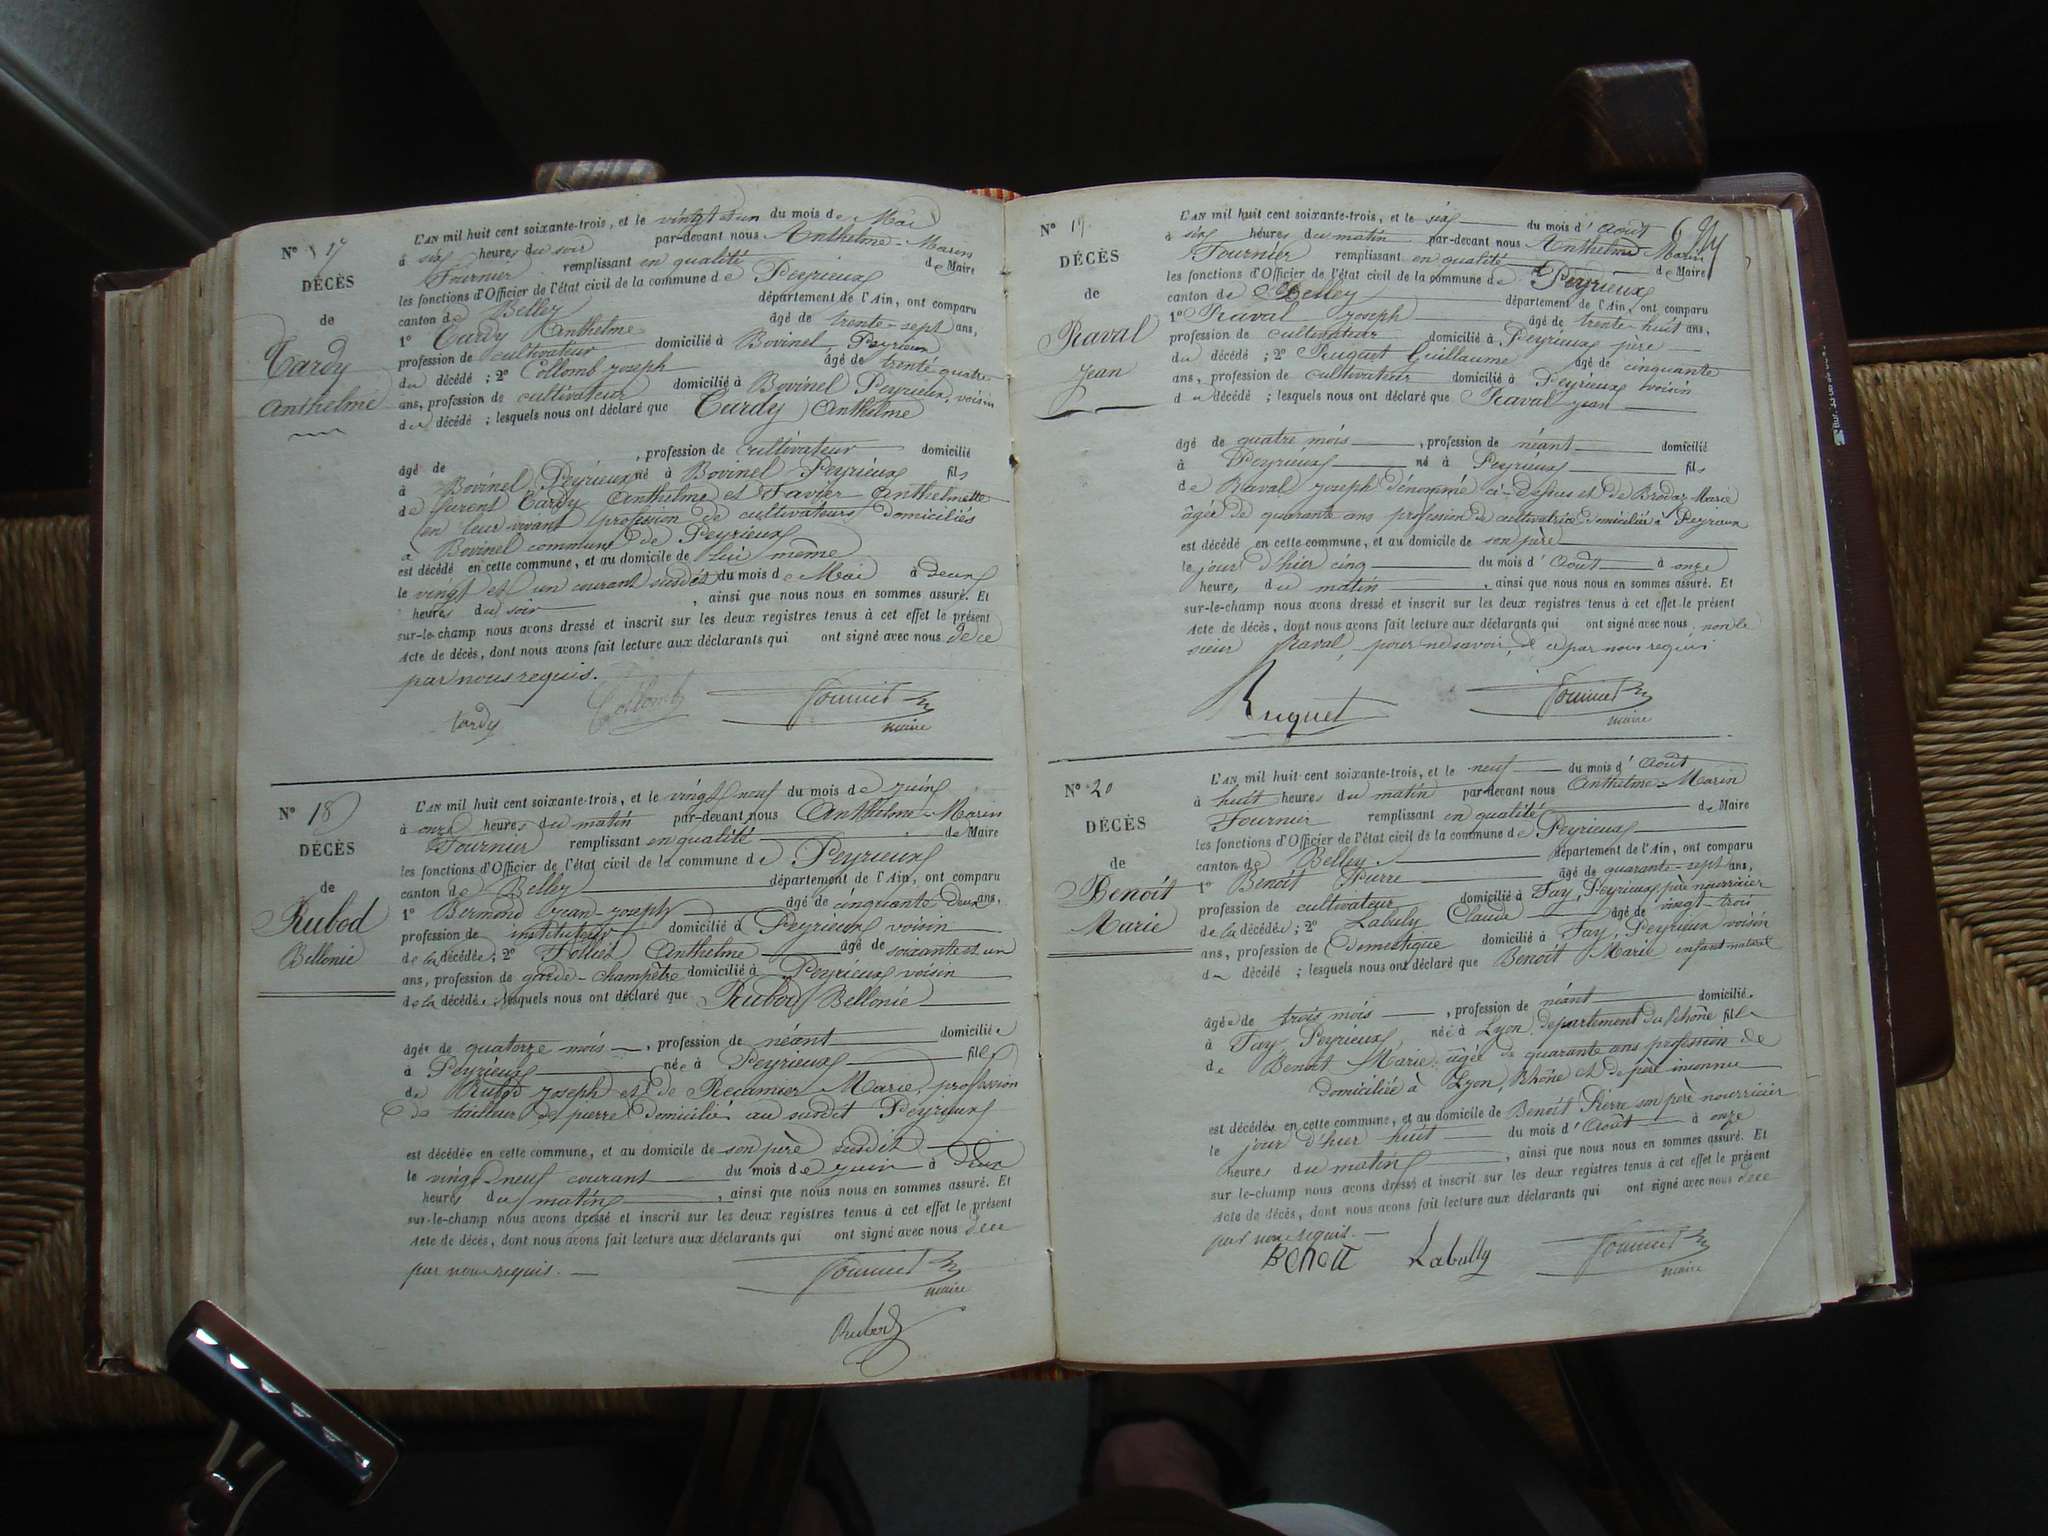 N° 17
DÉCÈS
de
Tardy
Anthelme
L'AN mil huit cent soixante-trois, et le vingt et un du mois de Mai
à six heures du soir par-devant nous Anthelme-Marin
Fournier remplissant en qualité de Maire
les fonctions d'Officier de l'état civil de la commune de Peyrieux
canton de Belley département de l'Ain, ont comparu
1° Tardy Anthelme âgé de trente-sept ans,
profession de cultivateur domicilié à Bovinel, Peyrieux
du décédé ; 2° Collomb joseph âgé de trente quatre
ans, profession de cultivateur domicilié à Bovinel Peyrieux, voisin
du décédé ; lesquels nous ont déclaré que Tardy Anthelme
âgé de , profession de cultivateur domicilié
à Bovinel Peyrieux né à Bovinel Peyrieux fils
de furent Tardy Anthelme et Favier Anthelmette
en leur vivant profession de cultivateurs domiciliés
à Bovinel commune de Peyrieux
est décédé en cette commune, et au domicile de lui même
le vingt et un courant susdit du mois de Mai à deux
heures du soir , ainsi que nous nous en sommes assuré. Et
sur-le-champ nous avons dressé et inscrit sur les deux registres tenus à cet effet le présent
Acte de décès, dont nous avons fait lecture aux déclarants qui ont signé avec nous de ce
par nous requis.
tardy Collomb Fournier
maire
N° 18
DÉCÈS
de
Rubod
Bellonie
L'AN mil huit cent soixante-trois, et le vingt neuf du mois de juin
à onze heures du matin par-devant nous Anthelme-Marin
Fournier remplissant en qualité de Maire
les fonctions d'Officier de l'état civil de la commune de Peyrieux
canton de Belley département de l'Ain, ont comparu
1° Bermond Jean-joseph âgé de cinquante deux ans,
profession de instituteur domicilié à Peyrieux voisin
de la décédée ; 2° Anthelme âgé de soixante et un
ans, profession de garde-champêtre domicilié à Peyrieux voisin
de la décédée lesquels nous ont déclaré que Rubod Bellonie
âgée de quatorze mois , profession de néant domiciliée
à Peyrieux née à Peyrieux fille
de Rubod joseph et de Recamier Marie, profession
de tailleur de pierre domicilié au susdit Peyrieux
est décédée en cette commune, et au domicile de son père susdit
le vingt neuf courant du mois de juin à deux
heures du matin , ainsi que nous nous en sommes assuré. Et
sur-le-champ nous avons dressé et inscrit sur les deux registres tenus à cet effet le présent
Acte de décès, dont nous avons fait lecture aux déclarants qui ont signé avec nous de ce
par nous requis.
Fournier
maire
Rubod
N° 19
DÉCÈS
de
Raval
jean
L'AN mil huit cent soixante-trois, et le six du mois d'Août
à six heures du matin par-devant nous Anthelme Marin
Fournier remplissant en qualité de Maire
les fonctions d'Officier de l'état civil de la commune de Peyrieux
canton de Belley département de l'Ain, ont comparu
1° Raval joseph âgé de trente-huit ans,
profession de cultivateur domicilié à Peyrieux père
du décédé ; 2° Ruguet Guillaume âgé de cinquante
ans, profession de cultivateur domicilié à Peyrieux voisin
du décédé ; lesquels nous ont déclaré que Raval jean
âgé de quatre mois , profession de néant domicilié
à Peyrieux né à Peyrieux fils
de Raval joseph dénommé ci-dessus et de Brodaz Marie
âgée de quarante ans profession de cultivatrice domiciliée à Peyrieux
est décédé en cette commune, et au domicile de son père
le jour d'hier cinq du mois d'Août à onze
heures du matin , ainsi que nous nous en sommes assuré. Et
sur-le-champ nous avons dressé et inscrit sur les deux registres tenus à cet effet le présent
Acte de décès, dont nous avons fait lecture aux déclarants qui ont signé avec nous, non le
sieur Raval, pour ne savoir, de ce par nous requis
Ruguet Fournier
maire
N° 20
DÉCÈS
de
Benoît
Marie
L'AN mil huit cent soixante-trois, et le neuf du mois d'Août
à huit heures du matin par-devant nous Anthelme-Marin
Fournier remplissant en qualité de Maire
les fonctions d'Officier de l'état civil de la commune de Peyrieux
canton de Belley département de l'Ain, ont comparu
1° Benoît Pierre âgé de quarante-sept ans,
profession de cultivateur domicilié à Fay, Peyrieux, père nourricier
de la décédée ; 2° Labully Claude âgé de vingt-trois
ans, profession de Domestique domicilié à Fay, Peyrieux voisin
d décédé ; lesquels nous ont déclaré que Benoît Marie enfant naturel
âgée de trois mois , profession de néant domicilié
à Fay Peyrieux, née à Lyon département du Rhône fille
de Benoît Marie, âgée de quarante ans profession de
domiciliée à Lyon, Rhône et de père inconnu
est décédée en cette commune, et au domicile de Benoît Pierre son père nourricier
le jour d'hier huit du mois d'Août à onze
heures du matin , ainsi que nous nous en sommes assuré. Et
sur le-champ nous avons dressé et inscrit sur les deux registres tenus à cet effet le présent
Acte de décès, dont nous avons fait lecture aux déclarants qui ont signé avec nous de ce
par nous requis.
Benoit Labully Fournier
maire